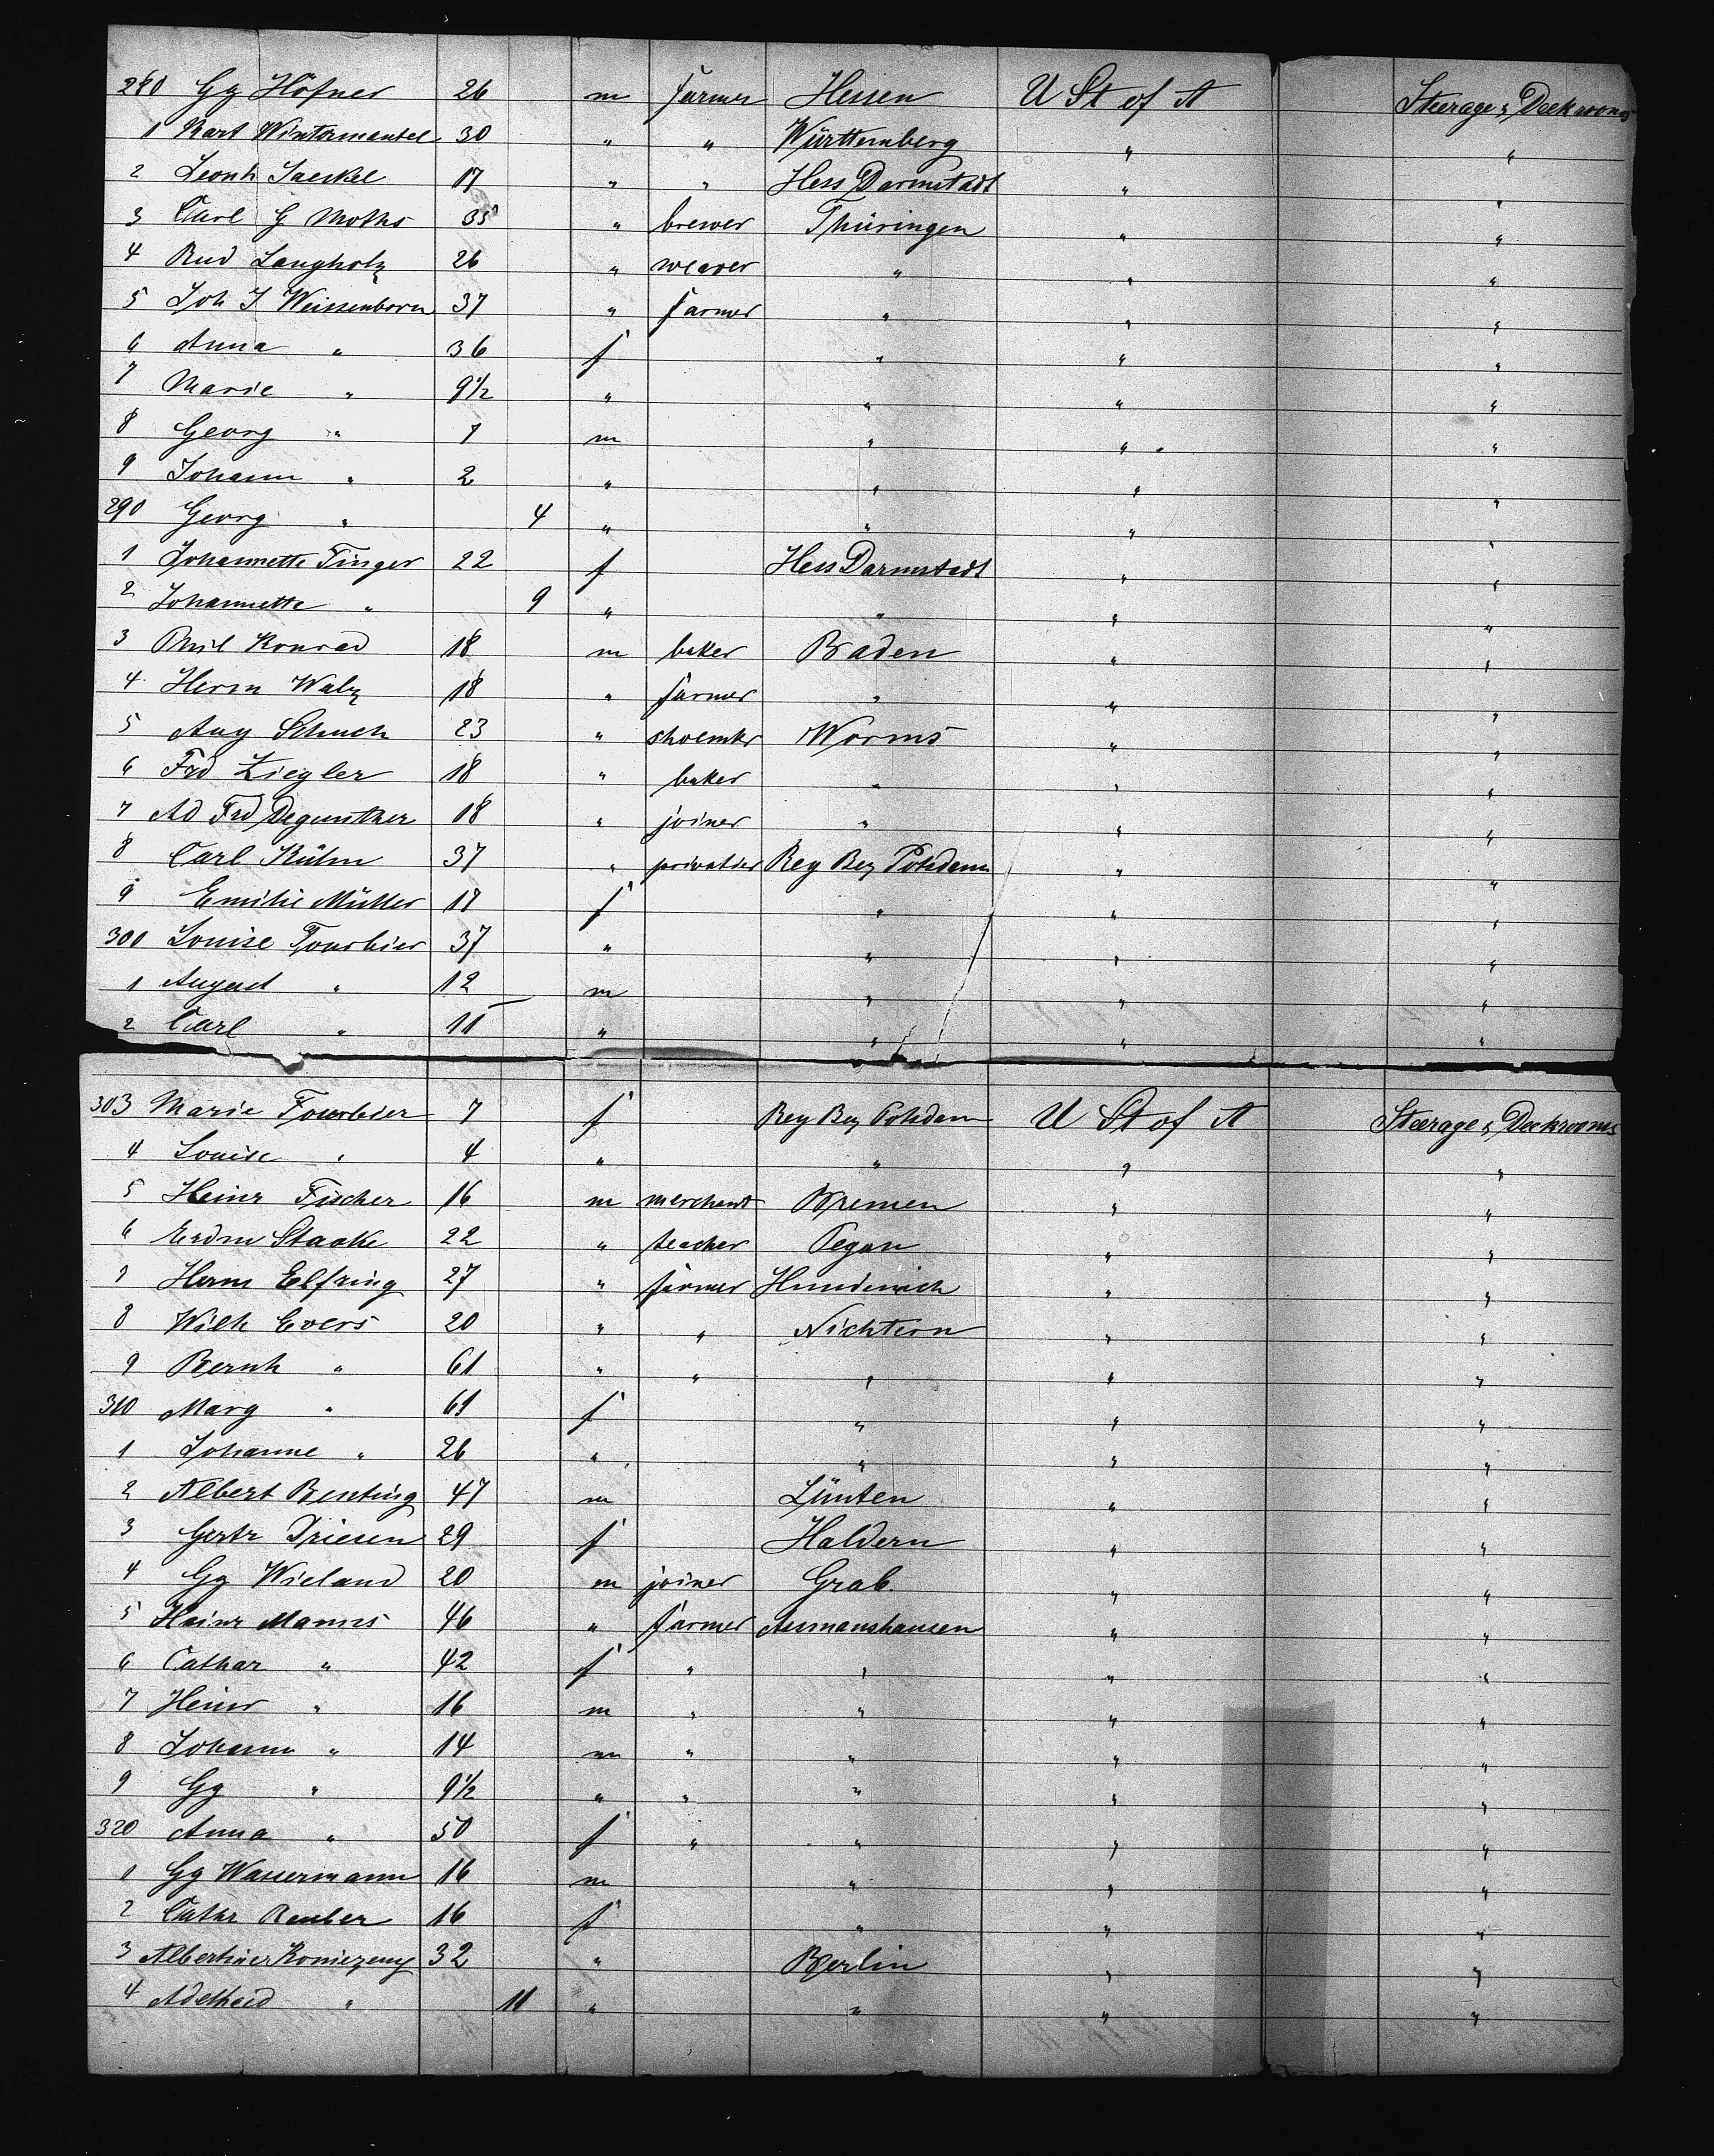 280 Gg Höfner 26 m farmer Hessen U St of A Steerage & Deckrooms
1 Karl Wintermantel 30 " " Württemberg " "
2 Leonh Jaeckel 17 " " Hess Darmstadt " "
3 Carl G Moths 35 " brewer Thüringen " "
4 Rud Langholz 26 " weaver " " "
5 Joh J Weissenborn 37 " farmer " " "
6 Anna " 36 f " " "
7 Marie " 9½ " " " "
8 Georg " 7 m " " "
9 Johann " 2 " " " "
290 Georg " 4 " " " "
1 Johannette Finger 22 f Hess Darmstadt " "
2 Johannette " 9 " " " "
3 Phil Konrad 18 m baker Baden " "
4 Herm Walz 18 " farmer " " "
5 Aug Schuch 23 " shoemkr Worms " "
6 Frd Ziegler 18 " baker " " "
7 Ad Frd Degunther 18 " joiner " " "
8 Carl Kühn 37 " privatier Reg Bez Potsdam " "
9 Emilie Müller 18 f " " "
300 Louise Tourbier 37 " " " "
1 August " 12 m " " "
2 Carl " 11 " " " "
303 Marie Tourbier 7 f Reg Bez Potsdam U St of A Steerage & Deckrooms
4 Louise " 4 " " " "
5 Heinr Fischer 16 m merchant Bremen " "
6 Erdm Staake 22 " teacher Pegau " "
7 Herm Elfring 27 " farmer " "
8 Wilh Evers 20 " " Nichtern " "
9 Bernh " 61 " " " " "
310 Marg " 61 f " " "
1 Johanne " 26 " " " "
2 Albert Benting 47 m Lünten " "
3 Gertr Driesen 29 f Haldern " "
4 Gg Wieland 20 m joiner Grab " "
5 Heinr Mannes 46 " farmer Assmanshausen " "
6 Cathar " 42 f " " " "
7 Heinr " 16 m " " " "
8 Johann " 14 m " " " "
9 Gg " 9½ " " " " "
320 Anna " 50 f " " " "
1 Gg Wassermann 16 m " " "
2 Cathr Reuber 16 f " " "
3 Albertine Koniezeny 32 " Berlin " "
4 Adelheid " 11 " " " "